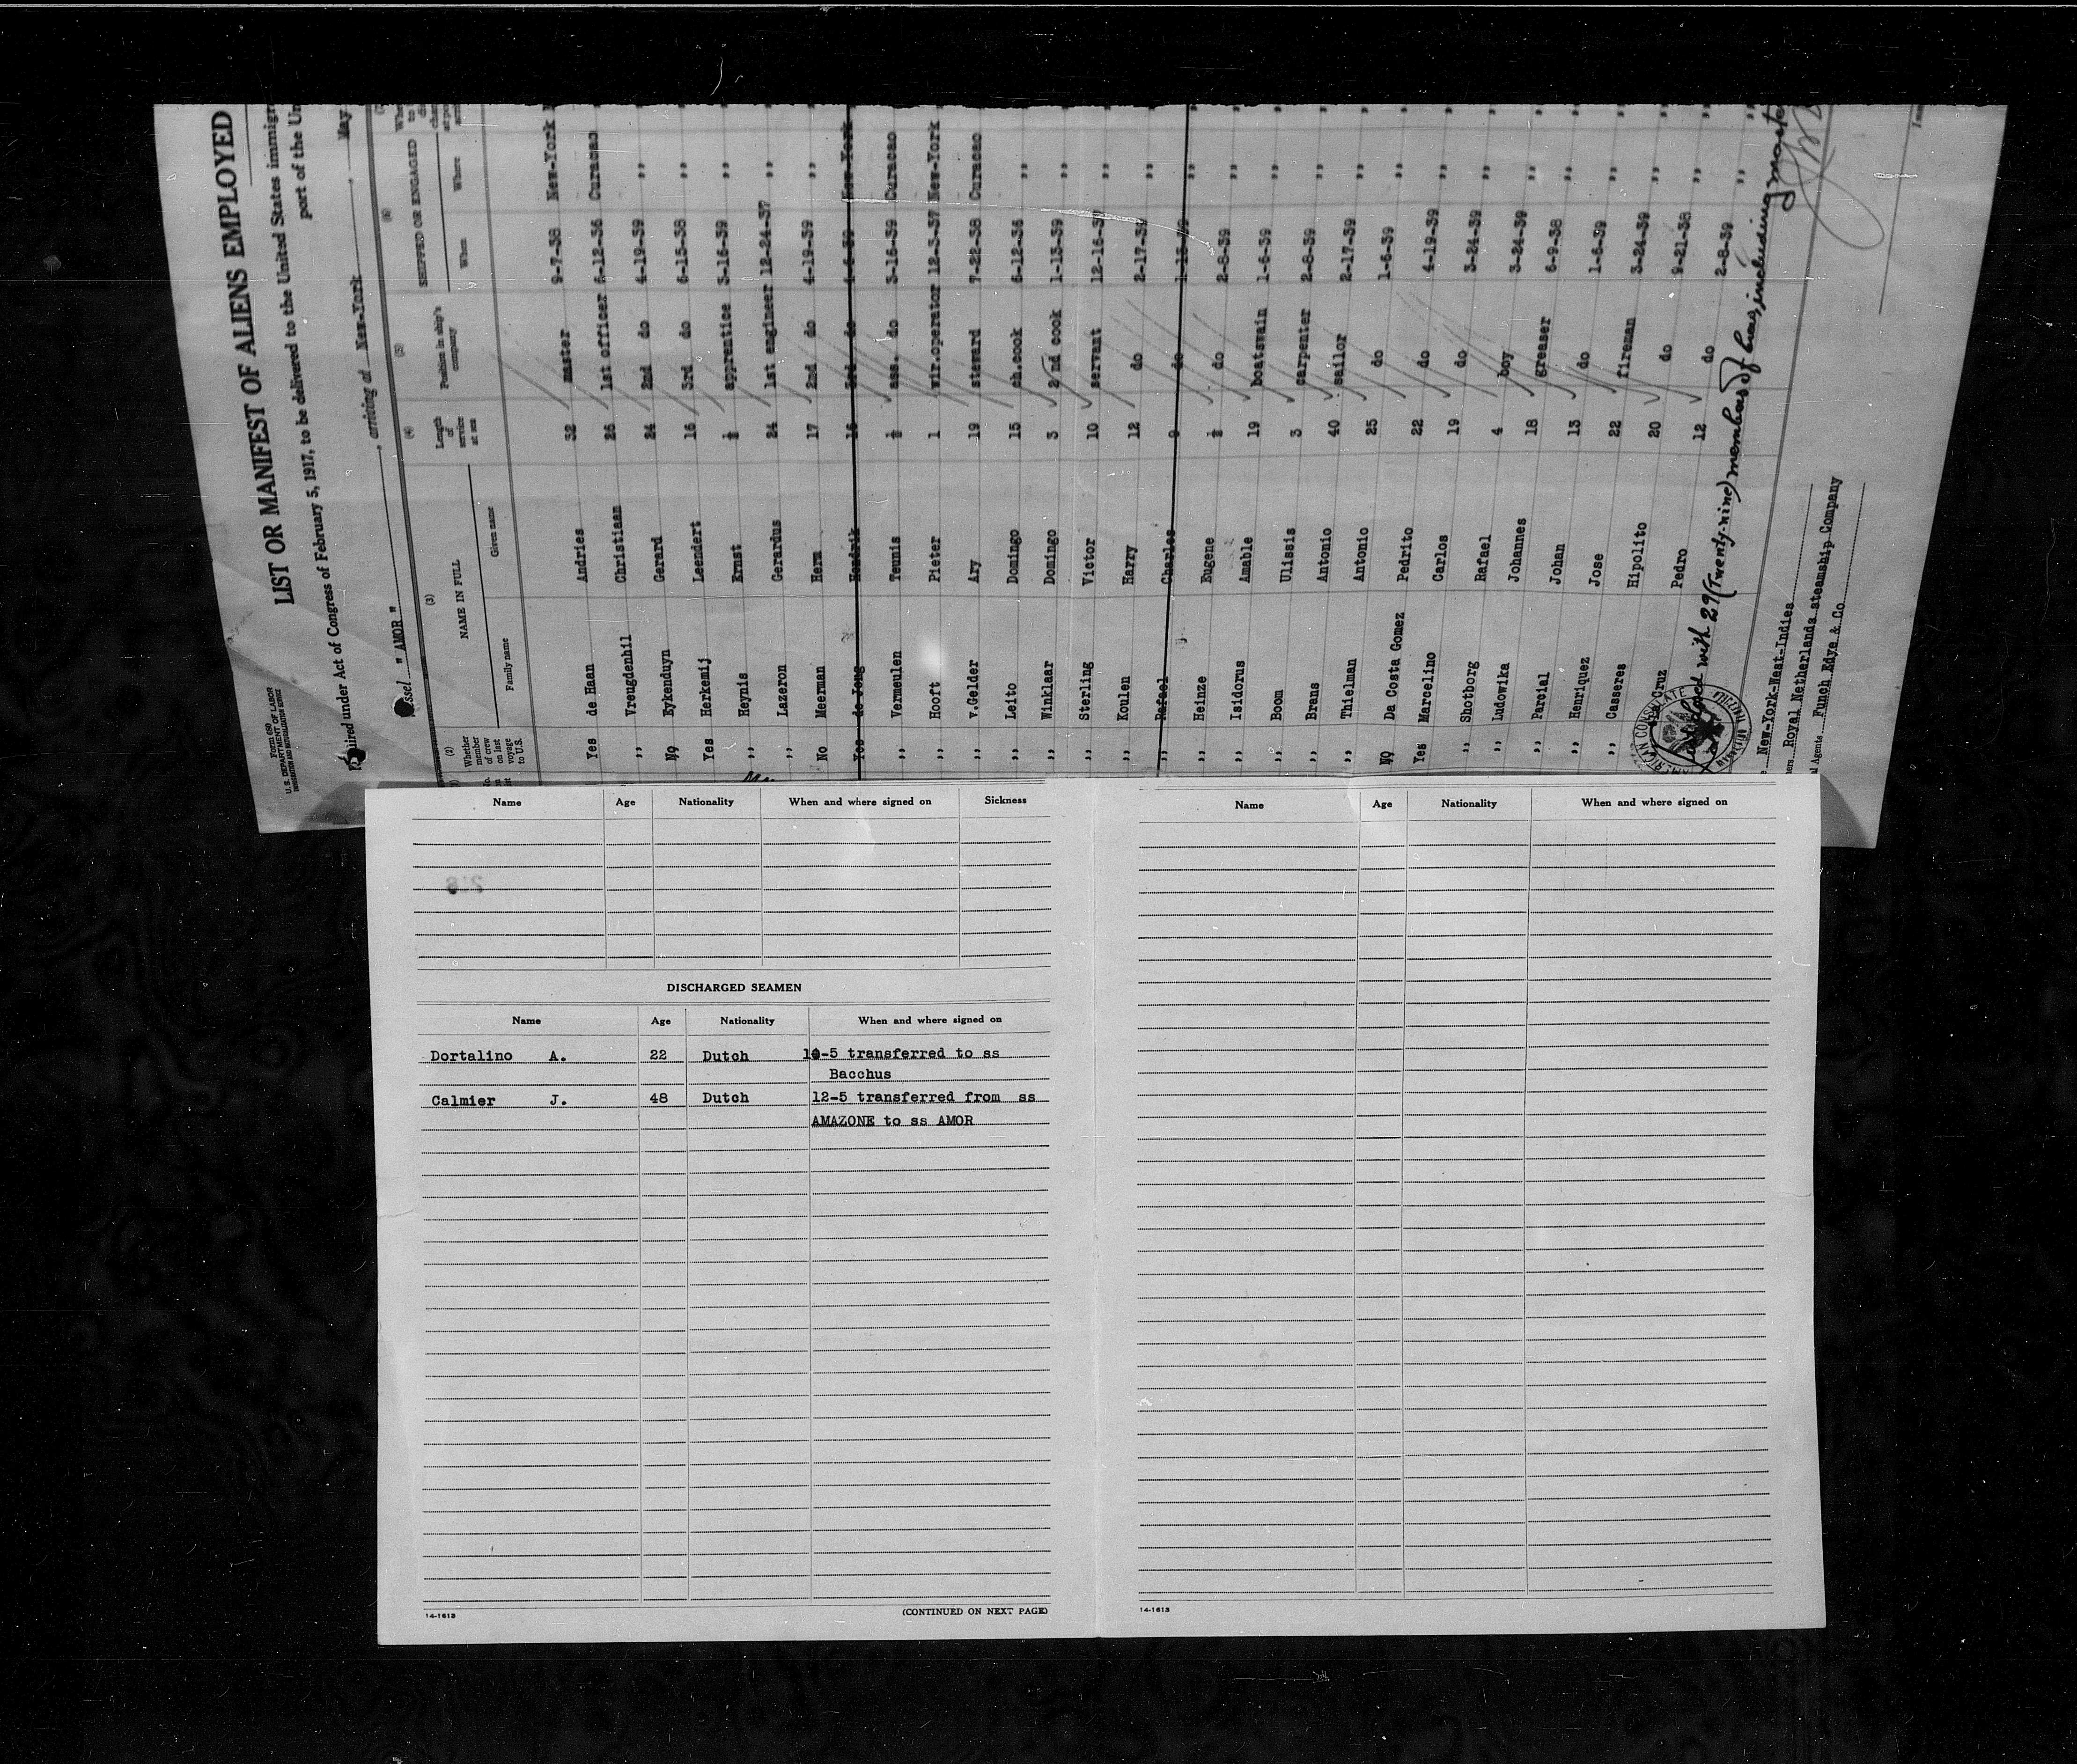 Form 680
U. S. DEPARTMENT OF LABOR
IMMIGRATION AND NATURALIZATION SERVICE
LIST OR MANIFEST OF ALIENS EMPLOYED
uired under Act of Congress of February 5, 1917, to be delivered to the United States immigr
port of the Un
ssel " AMOR " , arriving at New-York , May
(2) (3) (4) (5) (6)
Whether member of crew on last voyage to U.S. NAME IN FULL Length of service at sea Position in ship's company SHIPPED OR ENGAGED
Family name Given name When Where
Yes de Haan Andries 32 master 9-7-38 New-York
,, Vreugdenhil Christiaan 26 1st officer 6-12-36 Curacao
No Eykenduyn Gerard 24 2nd do 4-19-39 ,,
Yes Herkemij Leendert 16 3rd do 6-15-38 ,,
,, Heynis Ernst ½ apprentice 3-16-39 ,,
,, Lazeron Gerardus 24 1st engineer 12-24-37 ,,
No Meerman Herm 17 2nd do 4-19-39 ,,
Yes de Jong Hendrik 16 3rd do 1-6-39 New-York
,, Vermeulen Teunis ½ ass. do 3-16-39 Curacao
,, Hooft Pieter 1 wir.operator 12-3-37 New-York
,, v.Gelder Ary 19 steward 7-22-38 Curacao
,, Leito Domingo 15 ch.cook 6-12-36 ,,
,, Winklaar Domingo 3 2nd cook 1-13-39 ,,
,, Sterling Victor 10 servant 12-16-37 ,,
,, Koulen Harry 12 do 2-17-39 ,,
,, Rafael Charles 9 do 1-13-39 ,,
,, Heinze Eugene ½ do 2-8-39 ,,
,, Isidorus Amable 19 boatswain 1-6-39 ,,
,, Boom Ulissis 3 carpenter 2-8-39 ,,
,, Brans Antonio 40 sailor 2-17-39 ,,
,, Thielman Antonio 25 do 1-6-39 ,,
No Da Costa Gomez Pedrito 22 do 4-19-39 ,,
Yes Marcelino Carlos 19 do 3-24-39 ,,
,, Shotborg Rafael 4 boy 3-24-39 ,,
,, Ludowika Johannes 18 greaser 6-9-38 ,,
,, Parcial Johan 13 do 1-6-39 ,,
,, Henriquez Jose 22 fireman 3-24-39 ,,
,, Casseres Hipolito 20 do 9-21-38 ,,
Cruz Pedro 12 do 2-8-39 ,,
with 29 (Twenty-nine) members of crew, including master
New-York-West-Indies
Royal Netherlands steamship Company
Agents Funch Edye & Co
Name Age Nationality When and where signed on Sickness
DISCHARGED SEAMEN
Name Age Nationality When and where signed on
Dortalino A. 22 Dutch 10-5 transferred to ss
Bacchus
Calmier J. 48 Dutch 12-5 transferred from ss
AMAZONE to ss AMOR
14-1613 (CONTINUED ON NEXT PAGE)
Name Age Nationality When and where signed on
14-1613